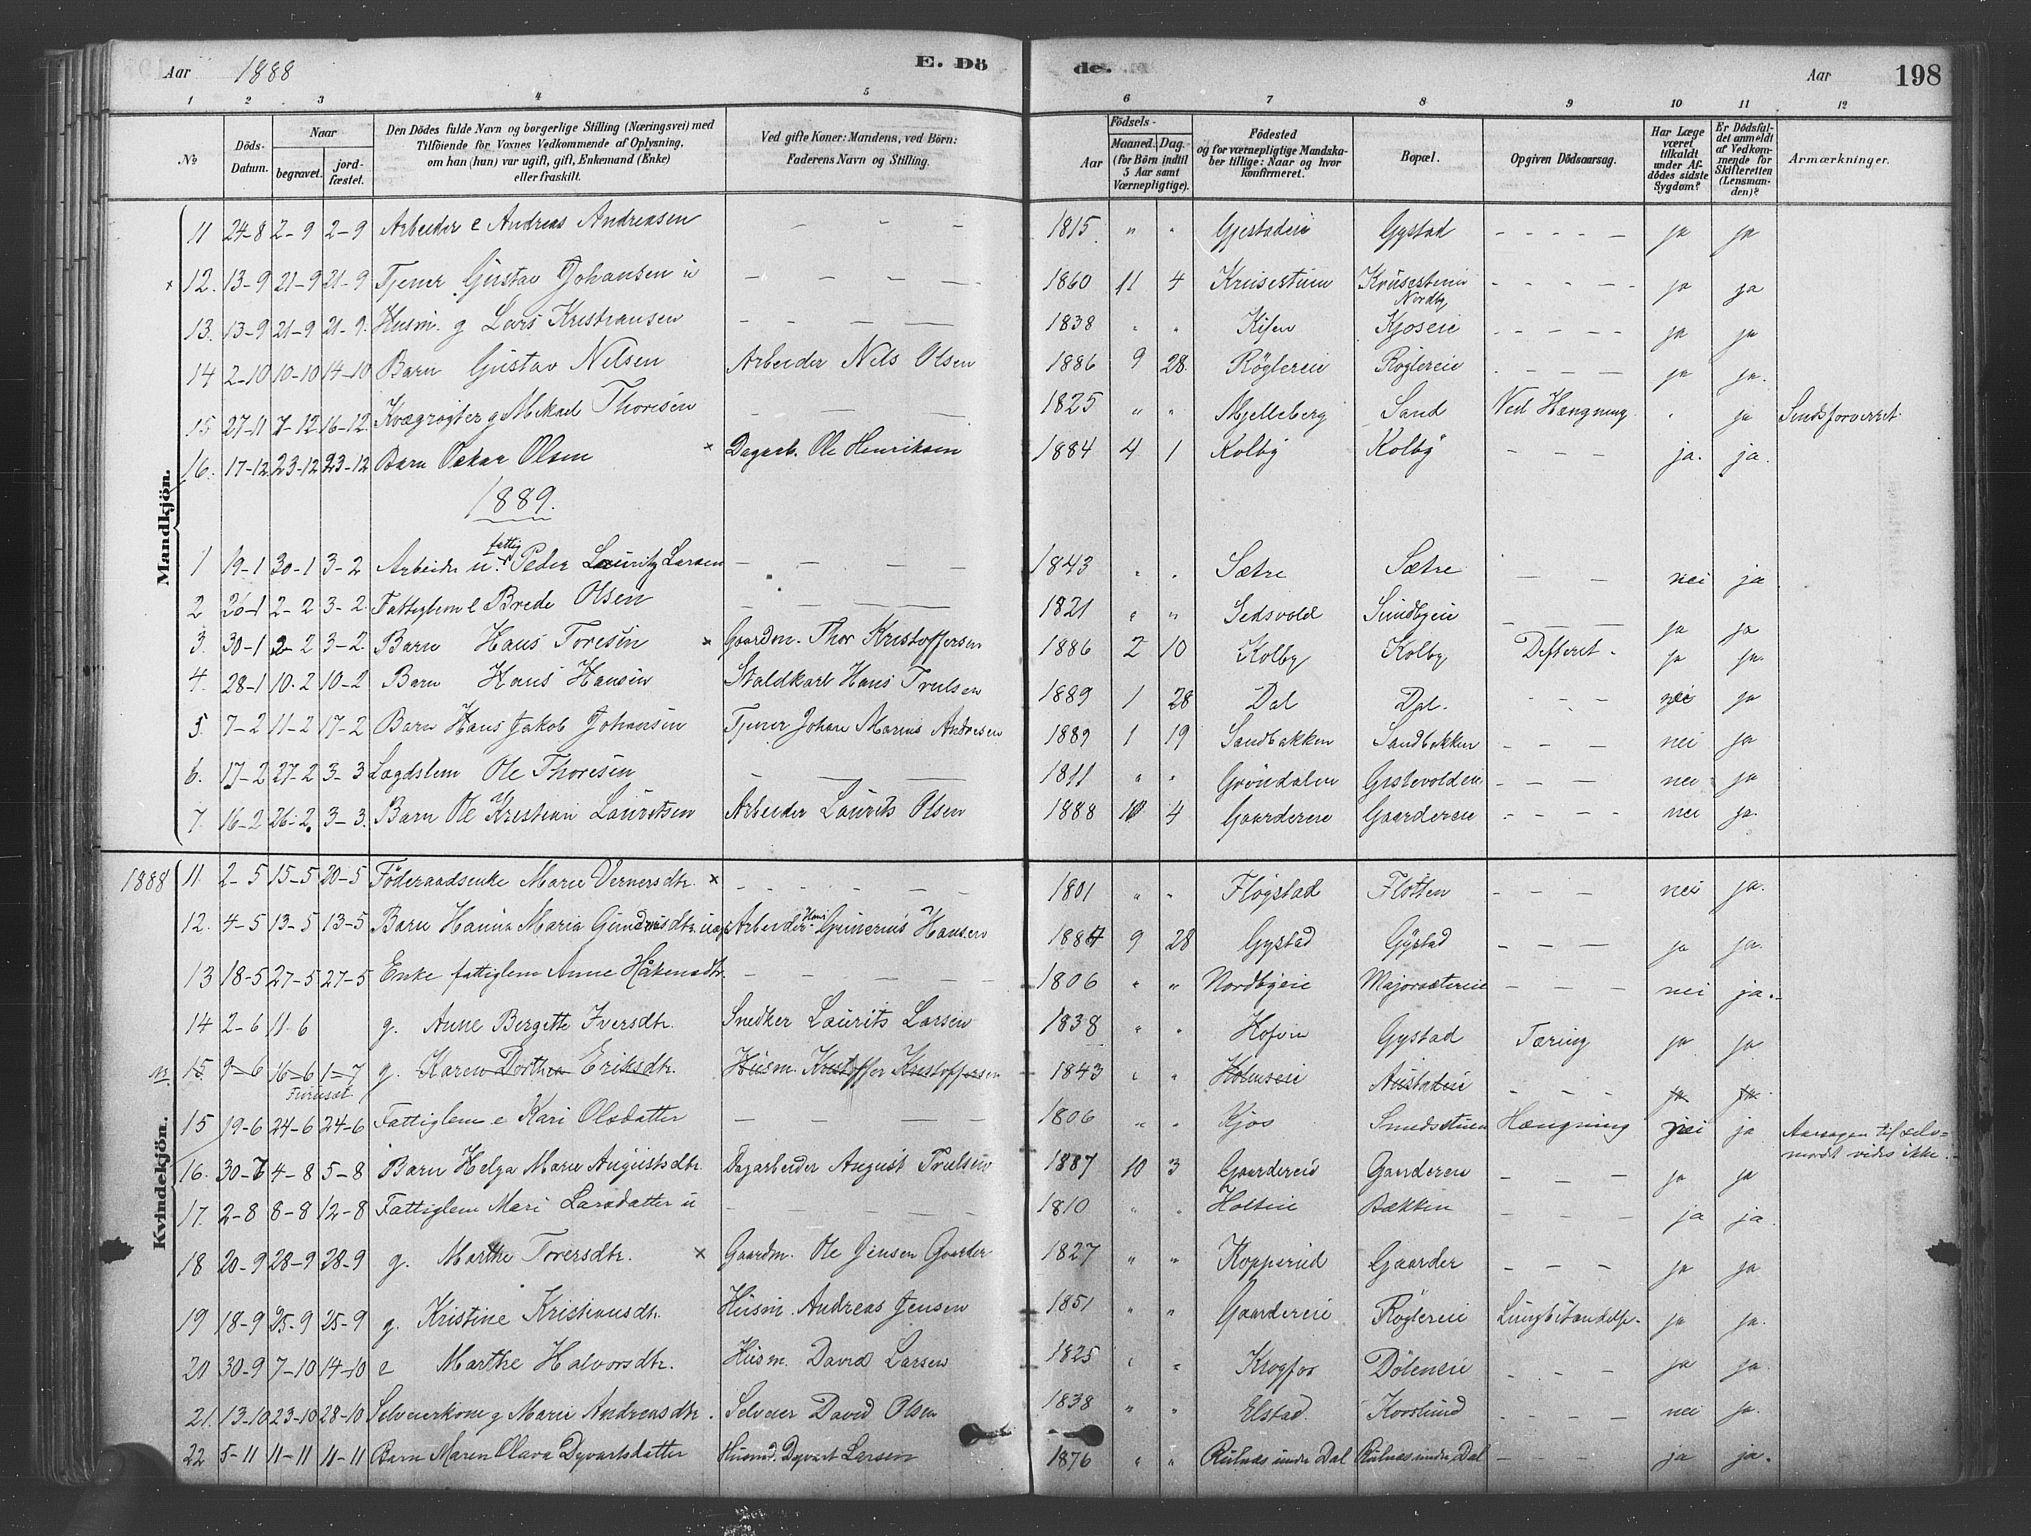 Aar 1888 E. Dö
de. Aar 198
1 2 3 4 5 6 7 8 9 10 11 12
№ Döds-Datum. Naar begravet. jord-fæstet. Den Dödes fulde Navn og borgerlige Stilling (Næringsvei) med Tilföiende for Voxnes Vedkommende af Oplysning, om han (hun) var ugift, gift, Enkemand (Enke) eller fraskilt. Ved gifte Koner: Mandens, ved Börn: Faderens Navn og Stilling. Födsels- Aar Maaned. Dag. (for Börn indtil 5 Aar samt Værnepligtige). Födested og for værnepligtige Mandskaber tillige: Naar og hvor konfirmeret. Bopæl. Opgiven Dödsaarsag. Har Læge været tilkaldt under Afdödes sidste Sygdom? Er Dödsfaldet anmeldt af Vedkommende for Skifteretten (Lensmanden)? Anmærkninger.
Mandkjön.
11 24-8 2-9 2-9 Arbeider e Andreas Andreasen — — — 1815 " " Gjestadeie Gystad - - - - - ja ja
x 12. 13-9 21-9 21-9 Tjener Gustav Johansen u — — — — 1860 11 4 Krusestuen Krusestuen Nordby - - - - - ja ja
13. 13-9 21-9 21-9. Husm. g Lars Kristiansen — — — — 1838 " " Kisen Kjoseie - - - - ja ja
14 2-10 10-10 14-10 Barn Gustav Nilsen Arbeider Nils Olsen 1886 9 28. Røglereie Røglereie - - - - ja ja.
15 27-11 7-12 16-12. Kvægrøgter g Mikael Thoresen — — — 1825 " " Mjelleberg Sand Ved Hængning. " ja Sindsforvirret.
16. 17-12 23-12 23-12 Barn Oskar Olsen x Dagarb. Ole Henriksen 1884 4 1 Kolby Kolby - - - ja. ja.
1889.
1 19-1 30-1 3-2 Arbeider u. fattig Peder Lauritz Larsen — — — — 1843 " " Sætre Sætre — — nei ja
2 26-1 2-2 3-2. Fattiglem e Brede Olsen — — — — 1821 " " Gedsvold Sundbyeie — — — ja ja
3. 30-1 2-2 3-2. Barn Hans Toresen x Gaardm. Thor Kristoffersen 1886 2 10 Kolby Kolby Difterit. ja ja.
4. 28-1 10-2 10-2 Barn Hans Hansen Staldkarl Hans Trulsen 1889 1 28 Dal Dal. - - - nei ja
5. 7-2 11-2 17-2 Barn Hans Jakob Johansen Tjener Johan Marius Andresen 1889 1 19 Sandbakken Sandbakken - - - nei ja
6. 17-2 27-2 3-3 Lægdslem Ole Thoresen — — — 1811 " " Grøndalen Gistevolden - - - nei ja
7. 16-2 26-2. 3-3. Barn Ole Kristian Lauritsen Arbeider Laurits Olsen 1888 10 4 Gaardereie Gaardereie - - - - nei ja.
Kvindekjön.
1888 11. 2-5 15-5 20-5 Föderaadsenke Marie Vernersdtr. x - - - - — — 1801 " " Flogstad Flotten - - - nei ja.
12. 4-5 13-5 13-5 Barn Hanna Maria Gunerusdtr. uægte Arbeider Hans Gunerius Hansen 1884 9 28 Gystad Gystad - - - ja ja.
13 18-5 27-5 27-5 Enke fattiglem Anne Håkensdtr. — — — — 1806 " " Nordbyeie Majorsætereie - - - nei ja.
14 2-6 11-6 g. Anne Bergette Iversdtr. Snedker Laurits Larsen 1838 " " Hofvin Gystad Tæring ja ja
15. 9-6 16-6 1-7 Furuset g. Karen Dorthea Eriksdtr. Husm. Kristoffer Kristoffersen 1843 " " Holmseie Austadeie - - - ja ja.
15 19-6 24-6 24-6 Fattiglem e Kari Olsdatter — — — — 1806 " " Kjos Smedsstuen Hængning nei ja Aarsagen til selvmordt vides ikke.
16. 30-7 4-8 5-8 Barn Helga Marie Augustsdtr. Dagarbeider August Trulsen 1887 10 3 Gaardereie Gaardereie - - - ja ja
17. 2-8 8-8 12-8 Fattiglem Mari Larsdatter u — — — — 1810 " " Holteie Bækken - - - ja ja.
18 20-9 28-9 28-9 g. Marthe Toversdtr. x Gaardm. Ole Jensen Gaarder 1827 " " Kopperud Gaarder - - - ja ja
19 18-9 25-9 25-9 g. Kristine Kristiansdtr. Husm. Andreas Jensen 1851 " " Gaardereie Røglereie Lungbetændelse. ja ja.
20 30-9 7-10 14-10 e Marthe Halvorsdtr. Husm. David Larsen 1825 " " Krogfos Döleneie - - - ja ja.
21. 13-10 23-10 28-10 Selveierkone g Marie Andreasdtr. Selveier David Olsen 1838 " " Elstad. Korslund - - - - nei ja.
22 5-11 11-11 11-11 Barn Maren Olava Dyvartsdatter Husmd. Dyvart Larsen 1876 " " Rulnæs under Dal Rulnæs under Dal - - - ja ja.